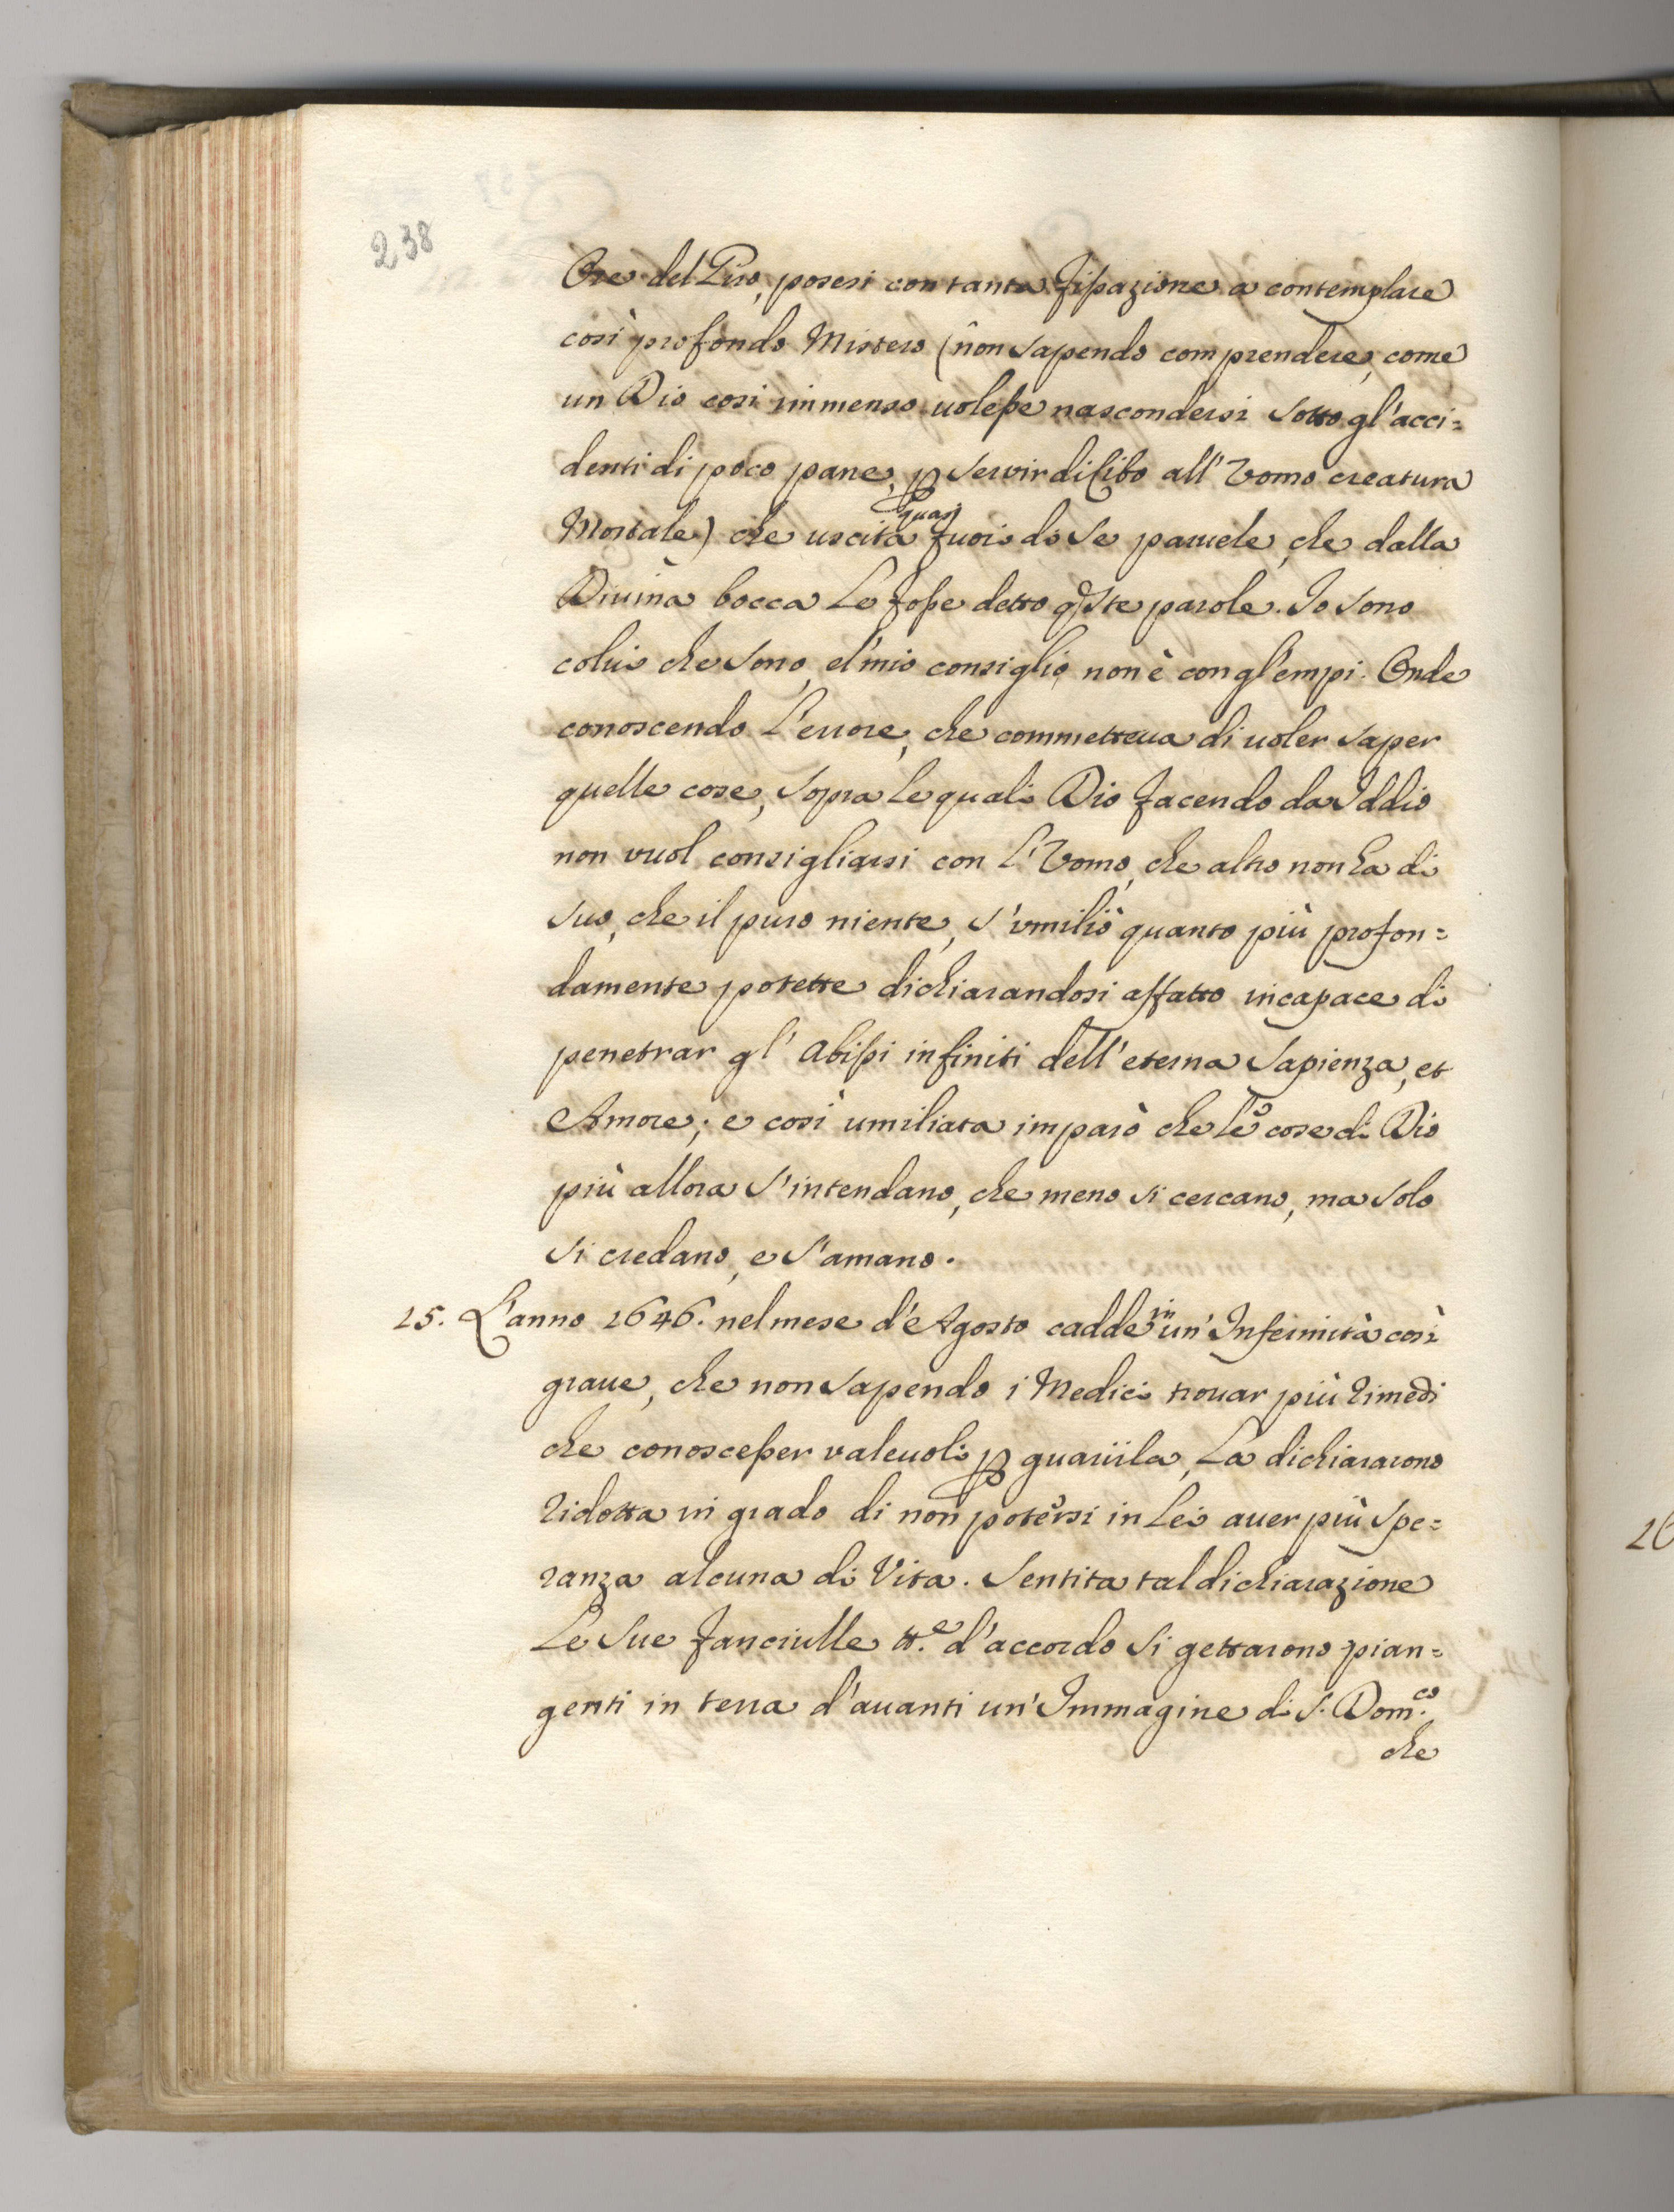 238
Ore del Giro, posesi con tanta fissazione a contemplare
così profondo Mistero (non sapendo comprendere, come
un Dio così immenso uolesse nascondersi sotto gl'acci=
denti di poco pane, p servir di Cibo all'Vomo creatura
Mortale) che uscita quasi fuori di se paruele, che dalla
Diuina bocca Le fosse detto qste parole. Io sono
colui che sono, el mio consiglio non è con gl'empi. Onde
conoscendo L'errore, che commetteua di uoler saper
quelle cose, sopra le quali Dio facendo da Iddio
non vuol consigliarsi con L'Vomo, che altro non ha di
suo, che il puro niente, s'vmiliò quanto più profon=
damente potette dichiarandosi affatto incapace di
penetrar gl'abissi infiniti dell'eterna Sapienza, et
Amore; e così umiliata imparò che le cose di Dio
più allora s'intendano, che meno si cercano, ma solo
si credano, e s'amano.
25. L'anno 1646. nel mese d'Agosto cadde in un'Infermità così
graue, che non sapendo i Medici trouar più rimedi
che conoscesser valeuoli p guarirla, La dichiararono
ridotta in grado di non potersi in Lei auer più spe=
ranza alcuna di Vita. Sentita tal dichiarazione
Le sue fanciulle tt.e d'accordo si gettarono pian=
genti in terra d'auanti un'Immagine di S. Dom.co
che
26